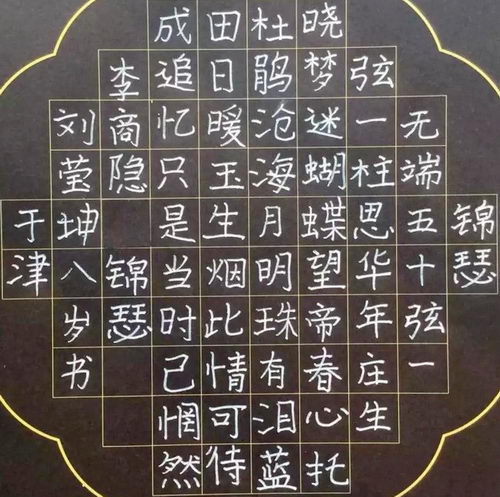 锦瑟
无端五十弦一
弦一柱思华年庄生
晓梦迷蝴蝶望帝春心托
杜鹃沧海月明珠有泪蓝
田日暖玉生烟此情可待
成追忆只是当时已惘然
李商隐 锦瑟
刘莹坤八岁书
于津